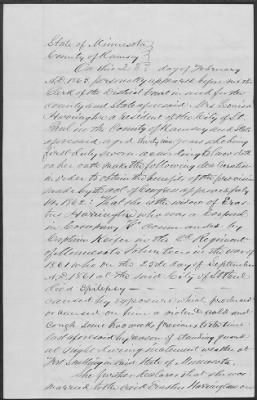 State of Minnesota
County of Ramsey
On this 2 day of February
A.D. 1865 personally appeared before me the
Clerk of the District Court in and for the
County and State aforesaid Mrs Louisa
Harrington a resident of the City of St.
Paul in the County of Ramsey and State
aforesaid aged thirty one years who being
first duly sworn according to law doth
on her oath make the following declaration
in order to obtain the benefits of the provision
made by the act of Congress approved July
14 1862: That she is the widow of Eras-
tus Harrington who was a Corporal
in Company commanded by
Captain Keefer in the 2d Regiment
of Minnesota Volunteers in the war of
1861 who on the 23d day of September
A.D. 1861 at the said City of St Paul
died Epilepsy
caused by exposure which produced
a violent cold and
cough some two weeks previous to the time
last aforesaid by reason of standing guard
at night during inclement weather at
Fort Snelling in said State of Minnesota.
She further declares that she was
married to the said Erastus Harrington on